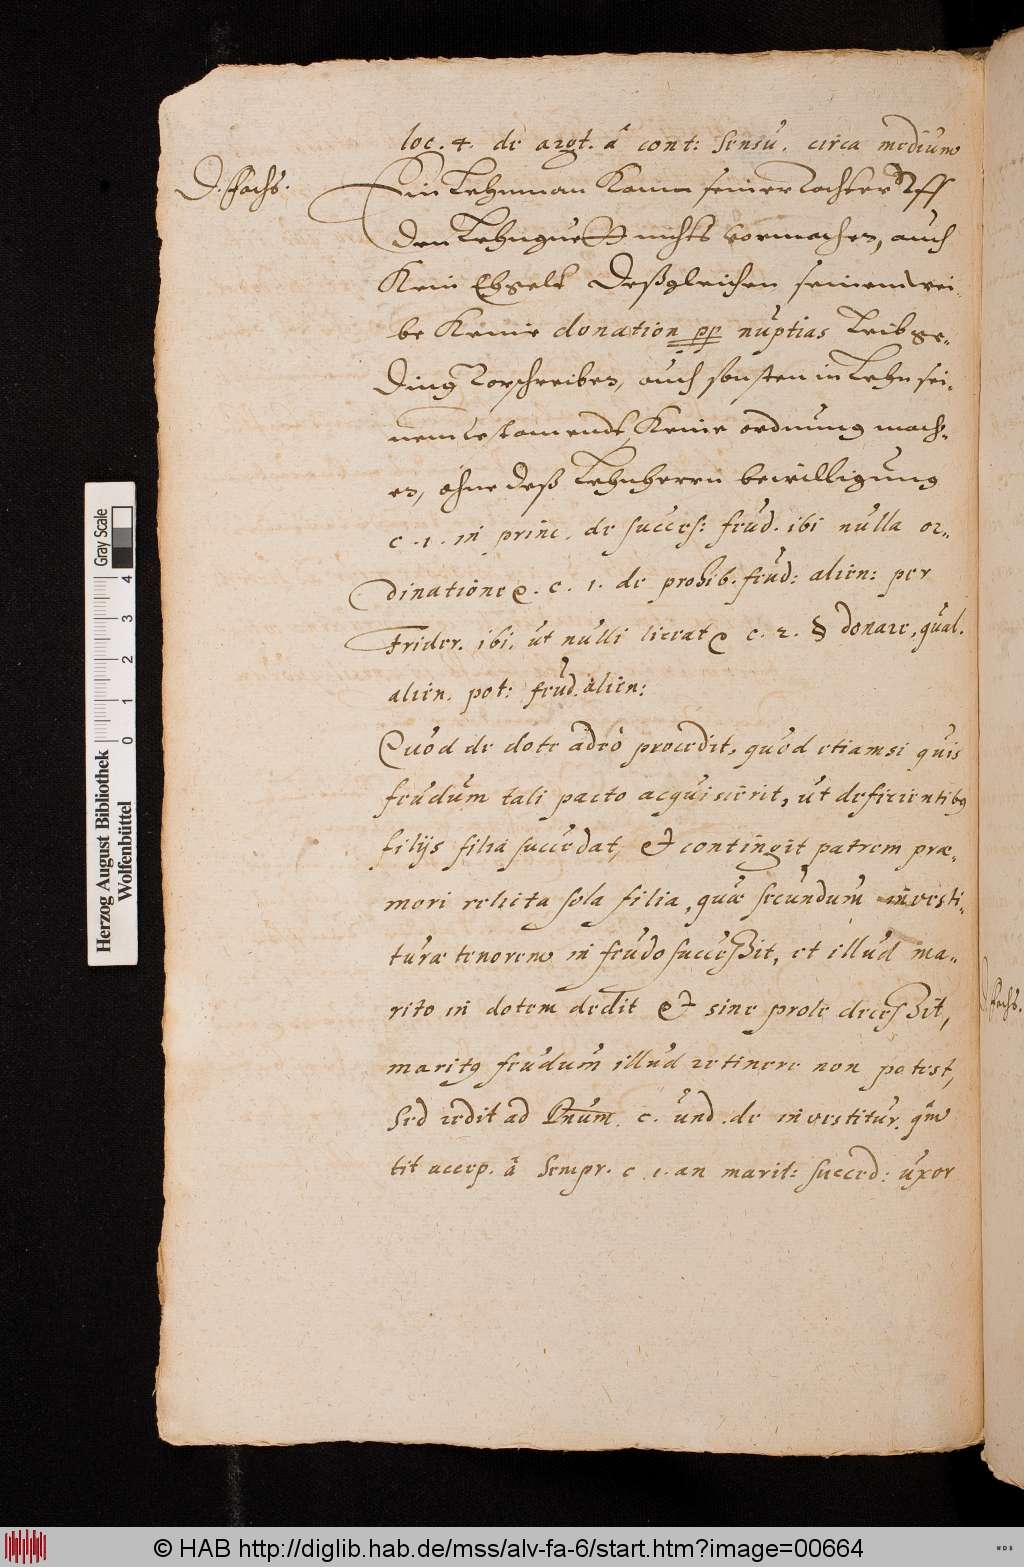 loc. 4. de argt. â cont: sensu. circa medium
D. Fachs.
Ein Lehnman Kann seiner Tochter Uff
den Lehngutt nichts vormachen, auch
Kein Ehgelt deßgleichen seinem wei-
be Keine donation pp nuptias Leibge-
ding vorschreiben, auch sonsten in Lehn sei-
nem testamendt, Keine ordnung mach-
en, ohne deß Lehnherrn bewilligung
c. 1. in princ. de success: feud. ibi nulla or-
dinatione. c. 1. de prohib. feud: alien: per
Frider. ibi. ut nulli liceat c. 2. § donare, qual.
alien. pot: feud. alien:
Quod de dote adeò procedit, quod etiamsi quis
feudum tali pacto acquisierit, ut deficientibus
filijs filia succedat, et contingit patrem præ-
mori relicta sola filia, quæ secundum investi-
turæ tenorem in feudo successit, et illud ma-
rito in dotem dedit et sine prole decessit,
maritus feudum illud retinere non potest,
Sed redit ad Dnum. c. und. de investitur. qm
tit accep. â Sempr. c. 1. an marit: succed: uxor
Fachs.
Herzog August Bibliothek
Wolfenbüttel
0 1 2 3 4
Gray Scale
© HAB http://diglib.hab.de/mss/alv-fa-6/start.htm?image=00664